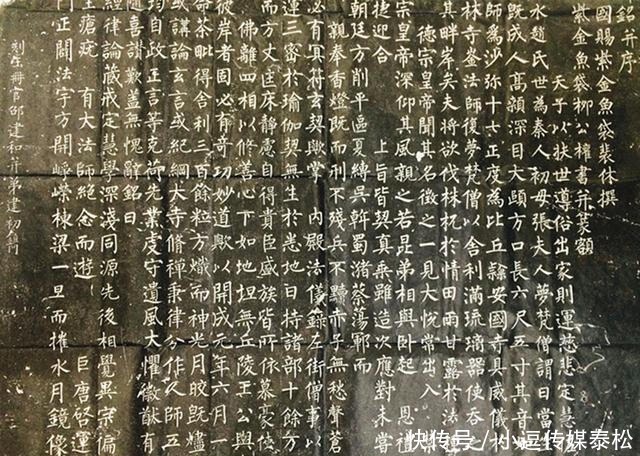 銘并序
國賜紫金魚袋裴休撰
紫金魚袋柳公權書并篆額
天子以扶世導俗出家則運慈悲定慧
水趙氏世為秦人初母張夫人夢梵僧謂曰當
既成人高顙深目大頤方口長六尺五寸其音
師為沙弥十七正度為比丘隸安國寺具威儀於
林寺崟法師復夢梵僧以舍利滿琉璃器使吞之
其畔岸矣夫將欲伐株杌於情田雨甘露於法
德宗皇帝聞其名徵之一見大悅常出入禁
宗皇帝深仰其風親之若昆弟相與臥起 恩禮
捷迎合 上旨皆契真乘雖造次應對未嘗
朝廷方削平區夏縛吳斡蜀潴蔡蕩鄆而
親奉香燈既而刑不殘兵不黷赤子無愁聲蒼
必有冥符玄契歟掌 內殿法儀錄左街僧事以
運三密於瑜伽契無生於悉地日持諸部十餘万
而方丈匡床靜慮自得貴臣盛族皆所依慕豪俠
佛離四相以修善心下如地坦無丘陵王公與
彼岸者固必有奇功妙道歟以開成元年六月一
命荼毗得舍利三百餘粒方熾而神光月皎既燼
或講論玄言或紀綱大寺修禪秉律分作人師五
均自政正言等克荷先業虔守遺風大懼徽猷有
隨喜讚歎蓋無愧辭銘曰
經律論藏戒定慧學深淺同源先後相覺異宗偏
主瘡疣 有大法師絕念而遊 巨唐啟運
門正闢法宇方開崢嶸棟梁一旦而摧水月鏡像
刻玉冊官邵建和并弟建初鐫
快传号/小逗传媒泰松